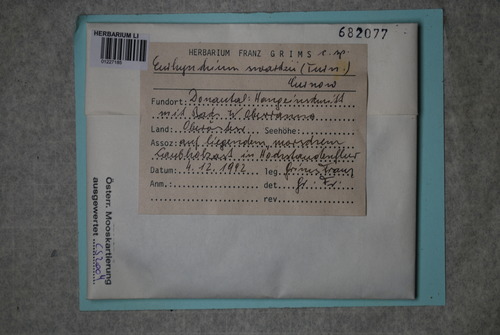 HERBARIUM LI
01227160
682077
HERBARIUM FRANZ GRIMS c. sp.
Eurhynchium swartzii (Turn.)
Curnow
Fundort: Donautal: Hangeinschnitt
mit Bach W Obernanna
Land: Oberösterr. Seehöhe:
Assoz: auf liegendem morschem
Laubholzast in
Datum: 4.12.1992 leg. Grims Franz
Anm.: det. Gr. Fr.
rev.
Österr. Mooskartierung
ausgewertet